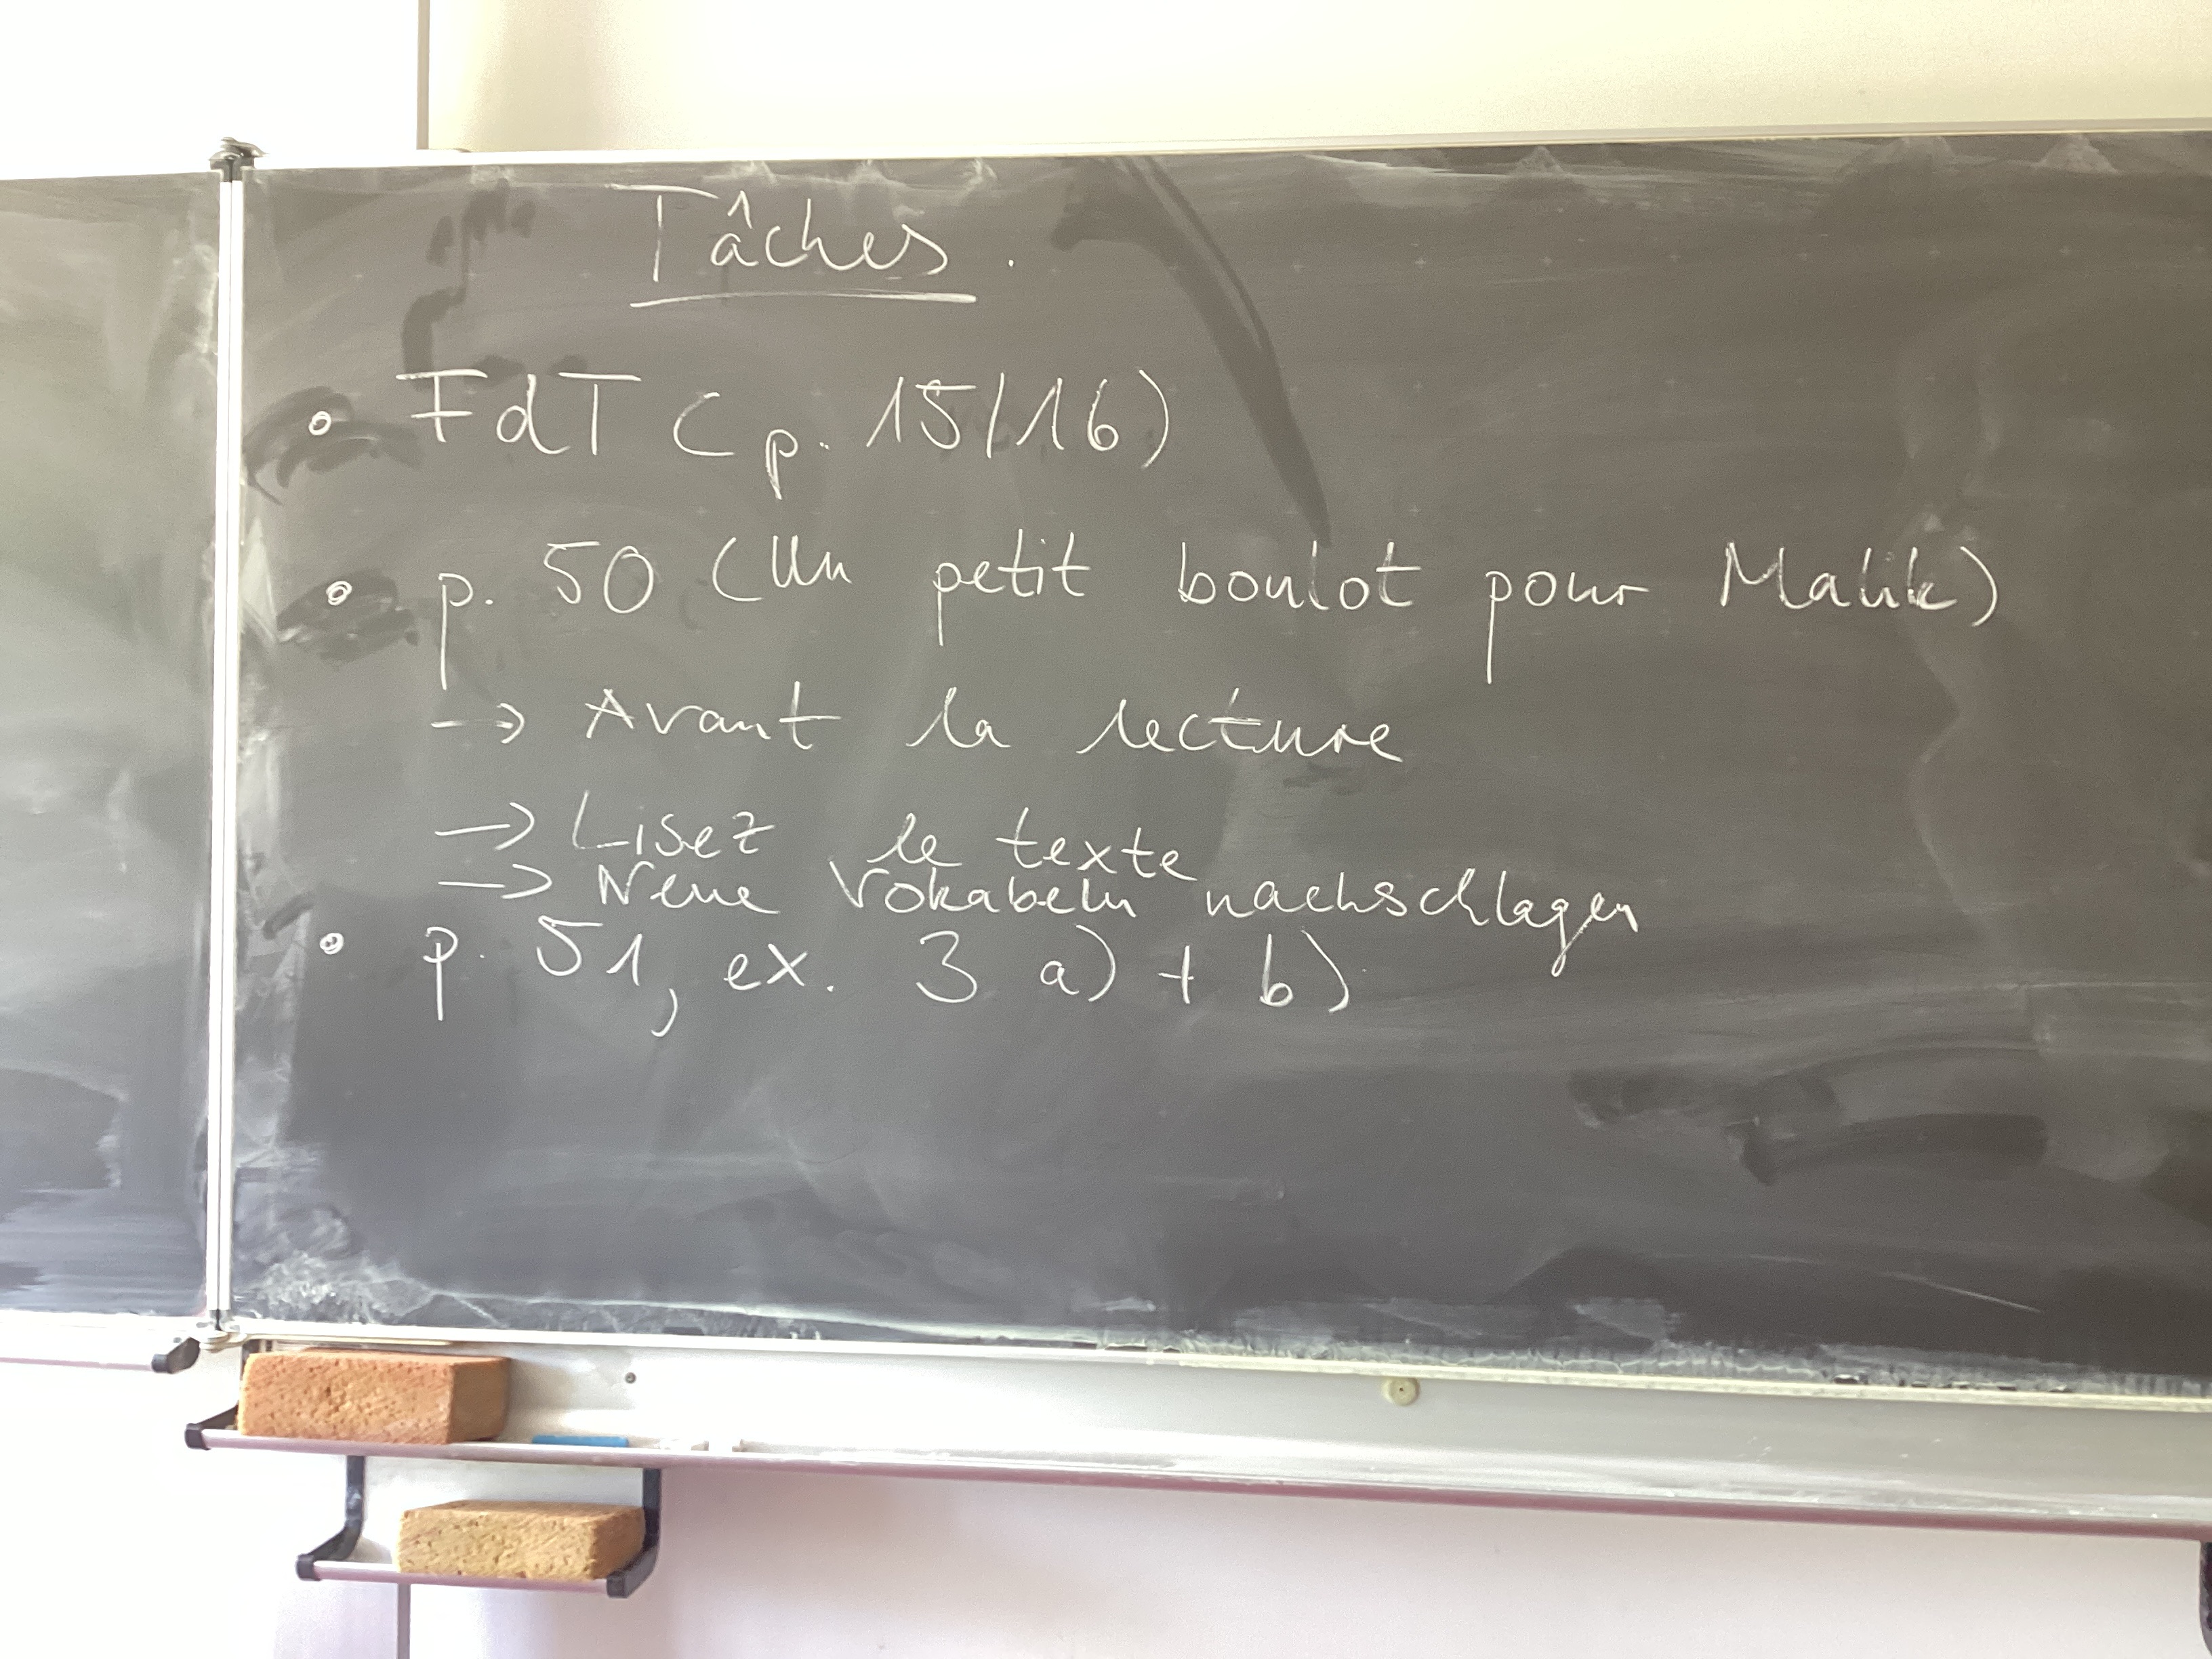 Tâches
• FdT (p. 15/16)
• p. 50 (Un petit boulot pour Malik)
→ Avant la lecture
→ Lisez le texte
→ Neue Vokabeln nachschlagen
• p. 51, ex. 3 a) + b)